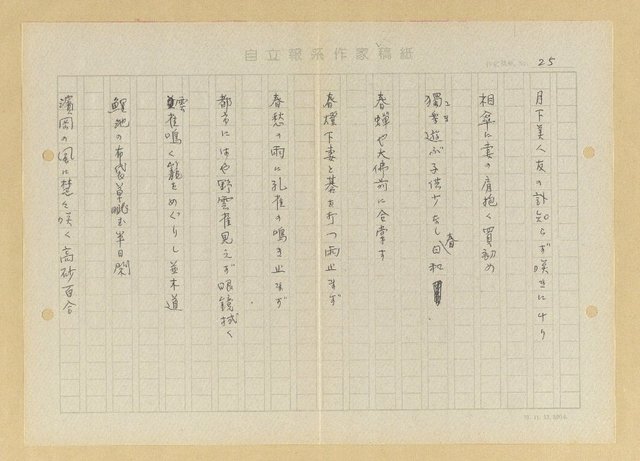 自立報系作家稿紙
25
月下美人友の訃知らず咲きにけり
相傘に妻の肩抱く買初め
獨楽遊ぶ子供少なし春日和
春蟬や大佛前に合掌す
春燈下妻と碁を打つ雨止まず
春愁の雨に孔雀の鳴き止まず
都市にはや野雲雀見えず眼鏡拭く
雲雀鳴く籠をめぐりし並木道
鯉池の布袋草眺む半日閑
濱岡の風に楚々咲く高砂百合